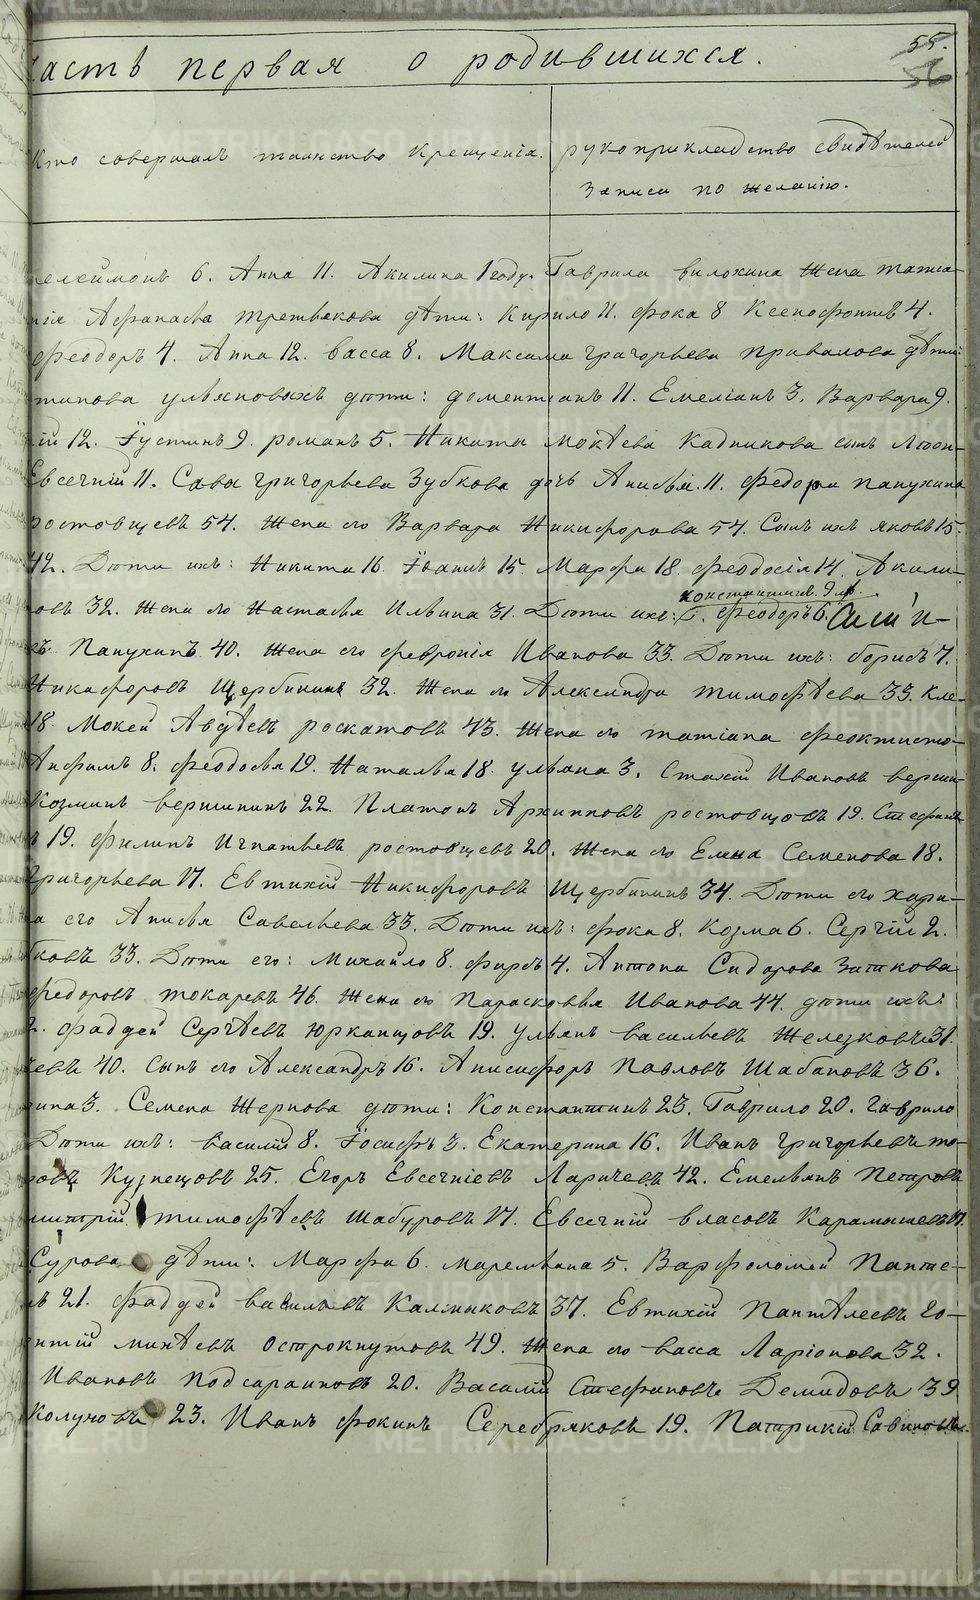 55.
56
Часть первая о родившихся.
Кто совершалъ таинство крещенія. рукоприкладство свидѣтелей
записи по желанію.
телеймонъ 6. Анна 11. Акилина 1 году. Гаврила вилохина жена татіа-
нія Афанасьева третьякова дѣти: Кирило 11. фока 8 Ксенофонтъ 4.
феодоръ 4. Анна 12. васса 8. Максима григорьева привалова дѣти:
типова ульяновыхъ дѣти: доментіанъ 11. Емеліанъ 3. Варвара 9.
ій 12. Іустинъ 9. романъ 5. Никиты Мокѣева Кадникова сынъ
Евсегній 11. Сава григорьева Зубкова дочь Анисья 11. федора папухина
ростовщевъ 54. жена его Варвара Никифорова 54. Сынъ ихъ яковъ 15.
42. Дѣти ихъ: Никита 16. Іоанъ 15. Марфа 18. феодосія 14. Акили-
константинъ 9
овъ 32. жена его Настасья Ильина 31. Дѣти ихъ: феодоръ 6.
Папухинъ 40. жена его февронія Иванова 33. Дѣти ихъ: борисъ 7.
Никифоровъ Щербининъ 32. жена его Александра тимофѣева 33. Кле-
18. Мокей Авдѣевъ роскатовъ 43. жена его татіана феоктисто-
Анфимъ 8. феодосья 19. Наталья 18. ульяна 3. Стахій Ивановъ верши-
Козминъ вершининъ 22. Платонъ Архиповъ ростовщовъ 19. Стефанъ
19. филипъ Игнатьевъ ростовщевъ 20. жена его Елена Семенова 18.
григорьева 17. Евтихій Никифоровъ Щербининъ 34. Дѣти его хари-
а его Анисья Савельева 33. Дѣти ихъ: фока 8. Козма 6. Сергій 2.
ковъ 33. Дѣти его: Михайло 8. фирсъ 4. Антона Сидорова Заткова
федоровъ токаревъ 46. жена его Парасковья Иванова 44. дѣти ихъ:
фаддей Сергѣевъ юрканцовъ 19. ульянъ васильевъ Железковъ 31.
евъ 40. Сынъ его Александръ 16. Анисифоръ Павловъ Шабановъ 36.
рина 3. Семена жернова дѣти: Константинъ 23. Гаврило 20. гаврило
Дѣти ихъ: василій 8. Іосифъ 3. Екатерина 16. Иванъ григорьевъ то-
ровъ Кузнецовъ 25. Егоръ Евсегніевъ Ларичевъ 42. Емельянъ Петровъ
митрій тимофѣевъ шабуровъ 17. Евсегній власовъ Карамышевъ 17.
Сурова дѣти: Марфа 6. маремьяна 5. Варфоломей Панте-
въ 21. фаддей васильевъ Калмыковъ 37. Евтихій Пантѣлеевъ го-
нтій минѣевъ острокнутовъ 49. жена его васса Ларіонова 32.
Ивановъ подсараиновъ 20. Василій Стефановъ Демидовъ 39
Колуновъ 23. Иванъ фокинъ Серебряковъ 19. Патрикій Савиновъ
METRIKI.GASO-URAL.RU